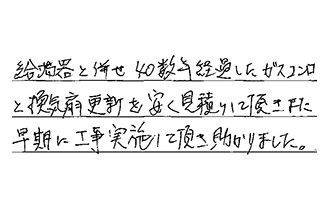 給湯器と併せ40数年経過したガスコンロ
と換気扇更新を安く見積りして頂きまた
早期に工事実施して頂き助かりました。